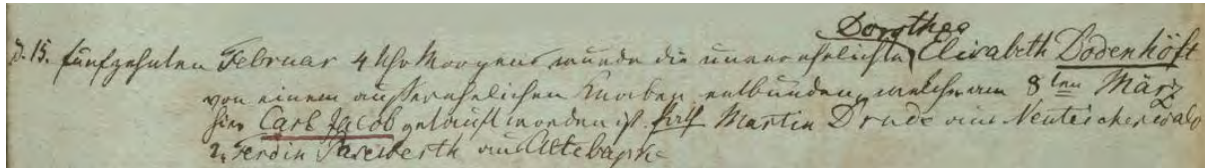 Dorothea
d. 15. fünfzehnten Februar 4 Uhr Morgens wurde die unverehelichte Elisabeth Dodenhöft
von einem außerehelichen Knaben entbunden, welcher am 8ten März
hier Carl Jacob getauft worden ist. Martin Drude aus Neuteicherwald
2, Ferdin aus